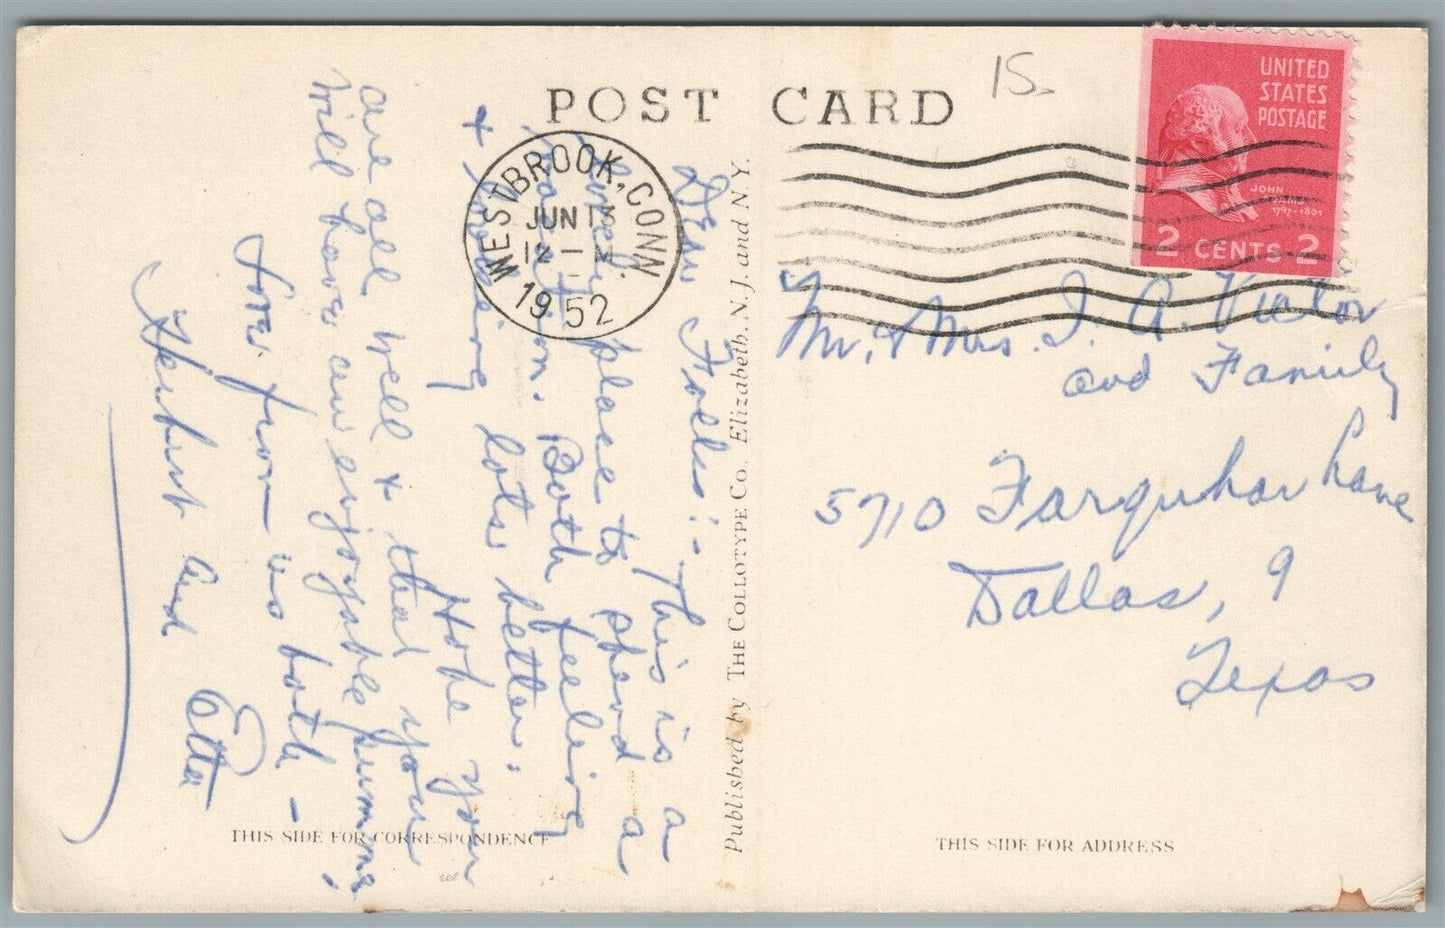 POST CARD
15.
UNITED
STATES
POSTAGE
JOHN
1797-1801
2 CENTS 2
WESTBROOK, CONN.
JUN 13
12 - M
1952
Dear Folks:- This is a
lovely place to spend a
vacation. Both feeling
+ looking lots better.
Hope you
are all well + that your
will have an enjoyable summer.
Love from us both -
Herbert and Etta
Published by THE COLLOTYPE CO. Elizabeth, N. J. and N. Y.
Mr. & Mrs. I. A. Victor
and Family
5710 Farquhar Lane
Dallas, 9
Texas
THIS SIDE FOR CORRESPONDENCE
THIS SIDE FOR ADDRESS